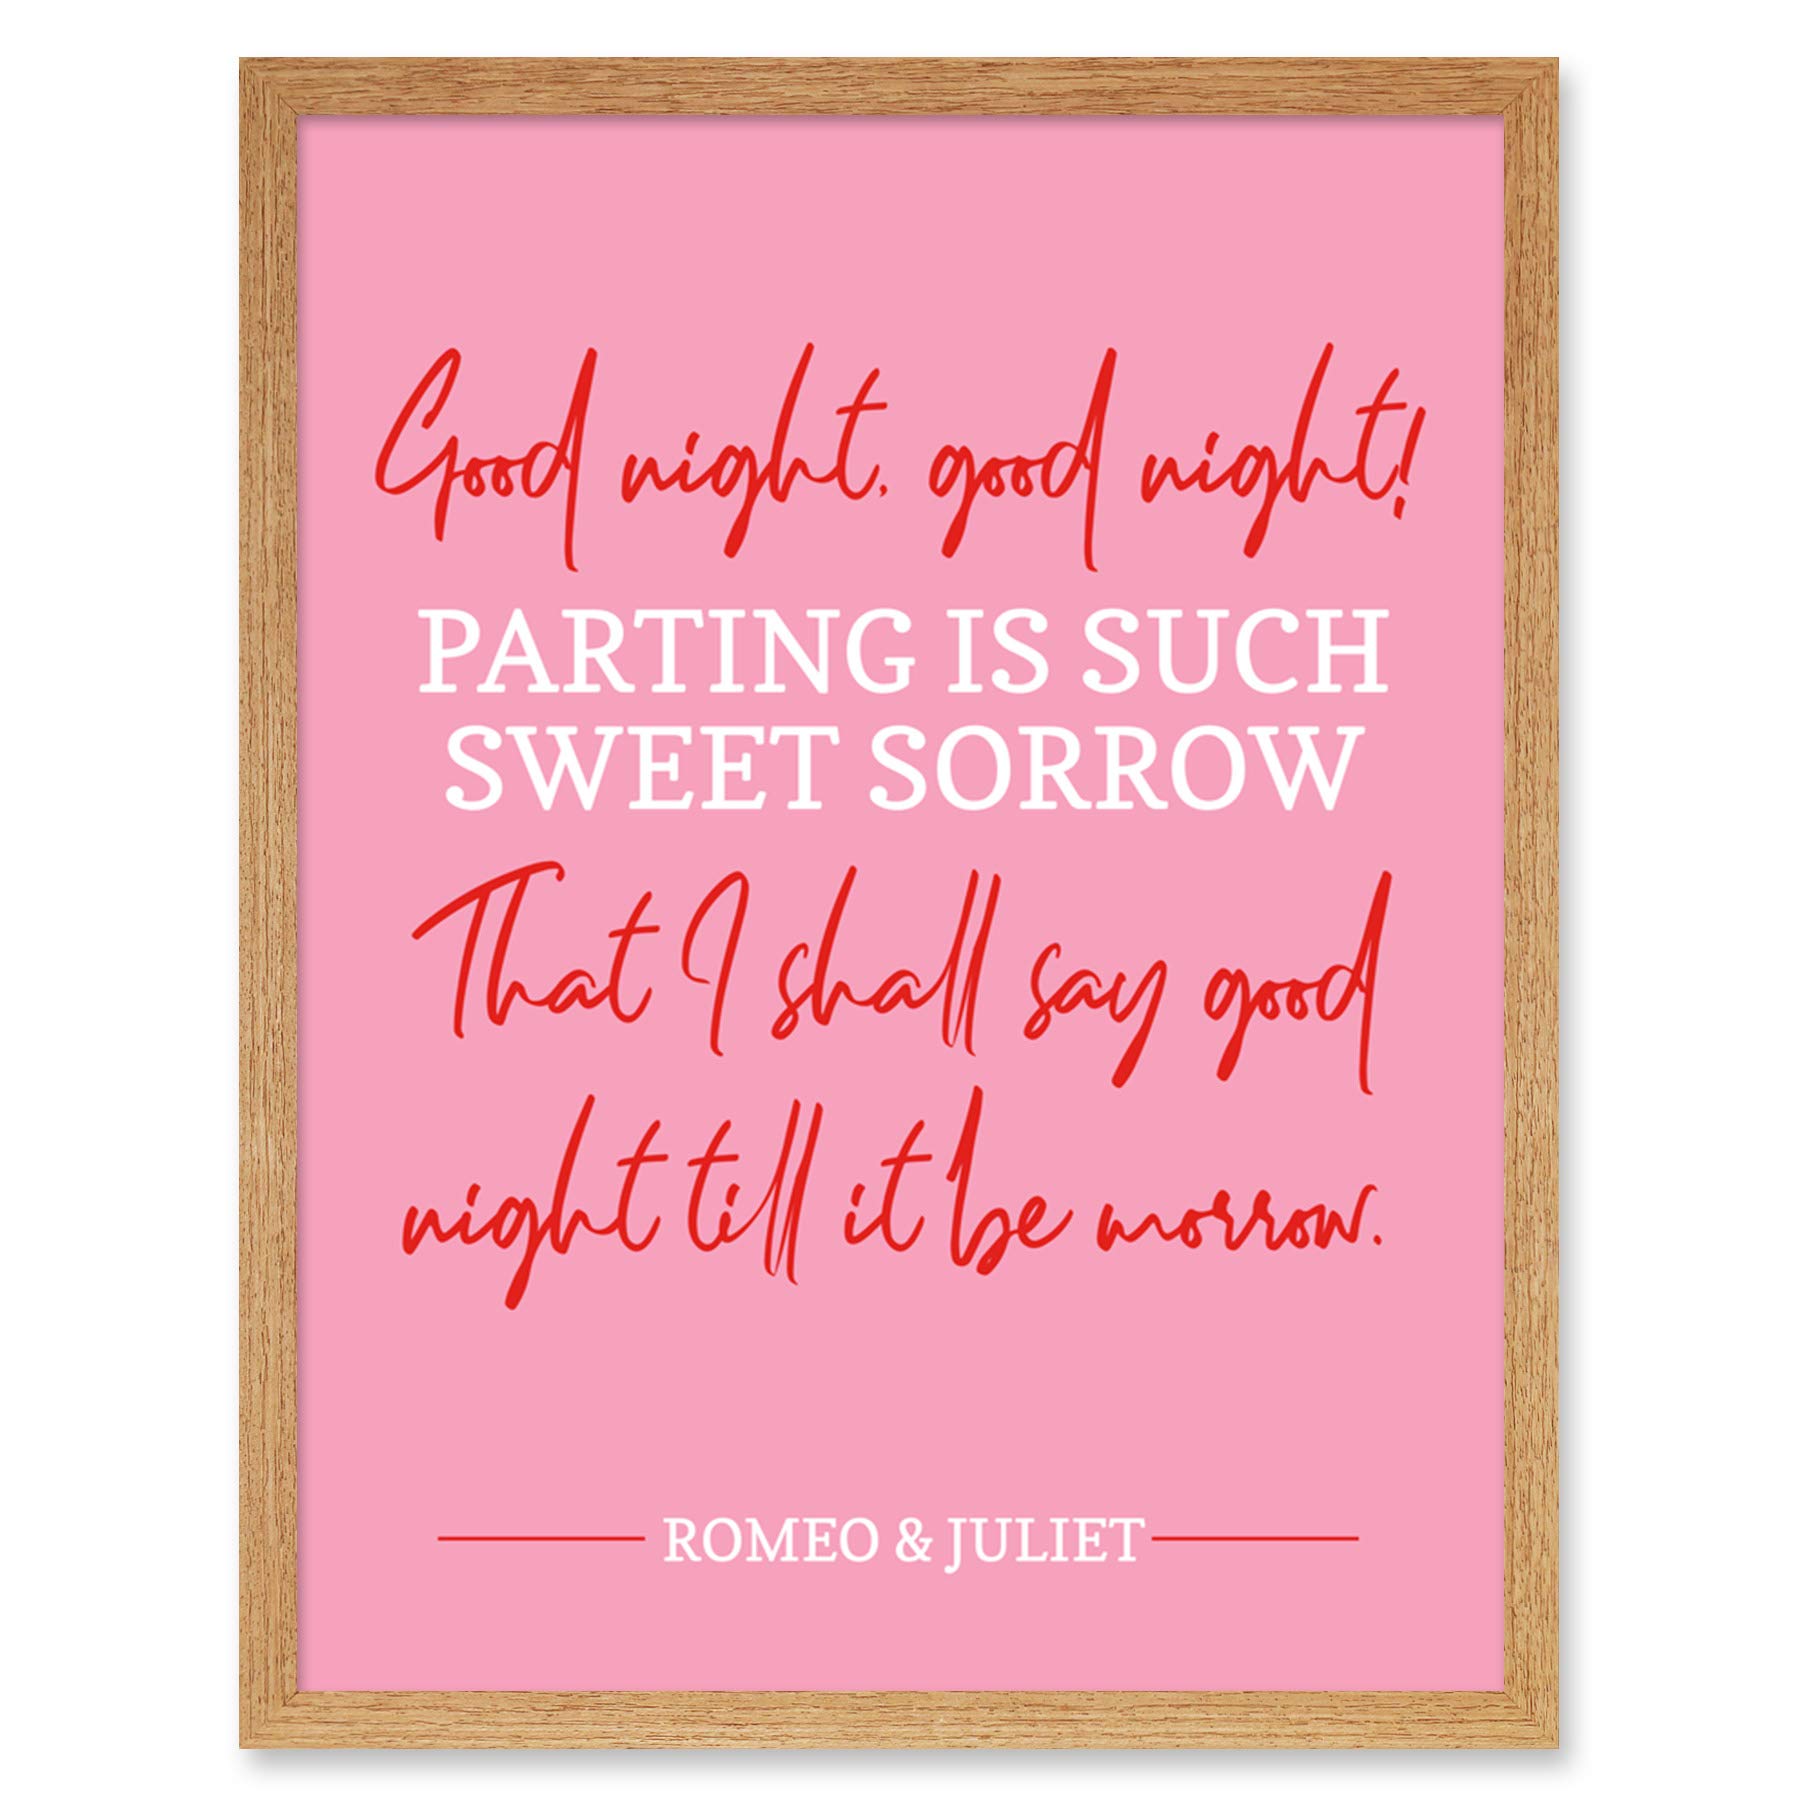 Good night, good night!
PARTING IS SUCH
SWEET SORROW
That I shall say good
night till it be morrow.
ROMEO & JULIET